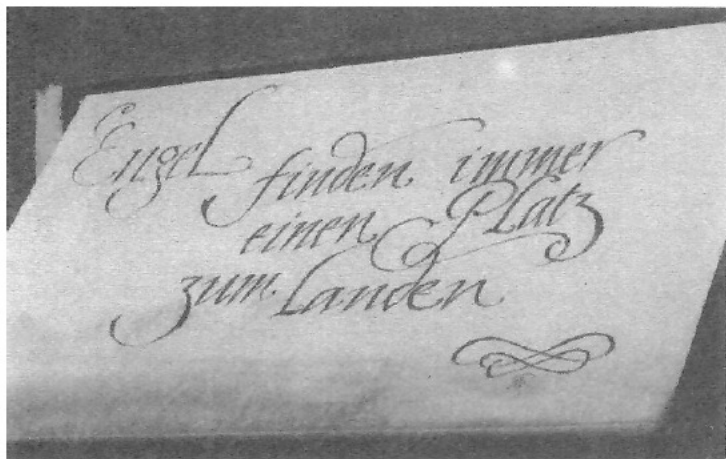 Engel
finden immer
einen Platz
zum landen